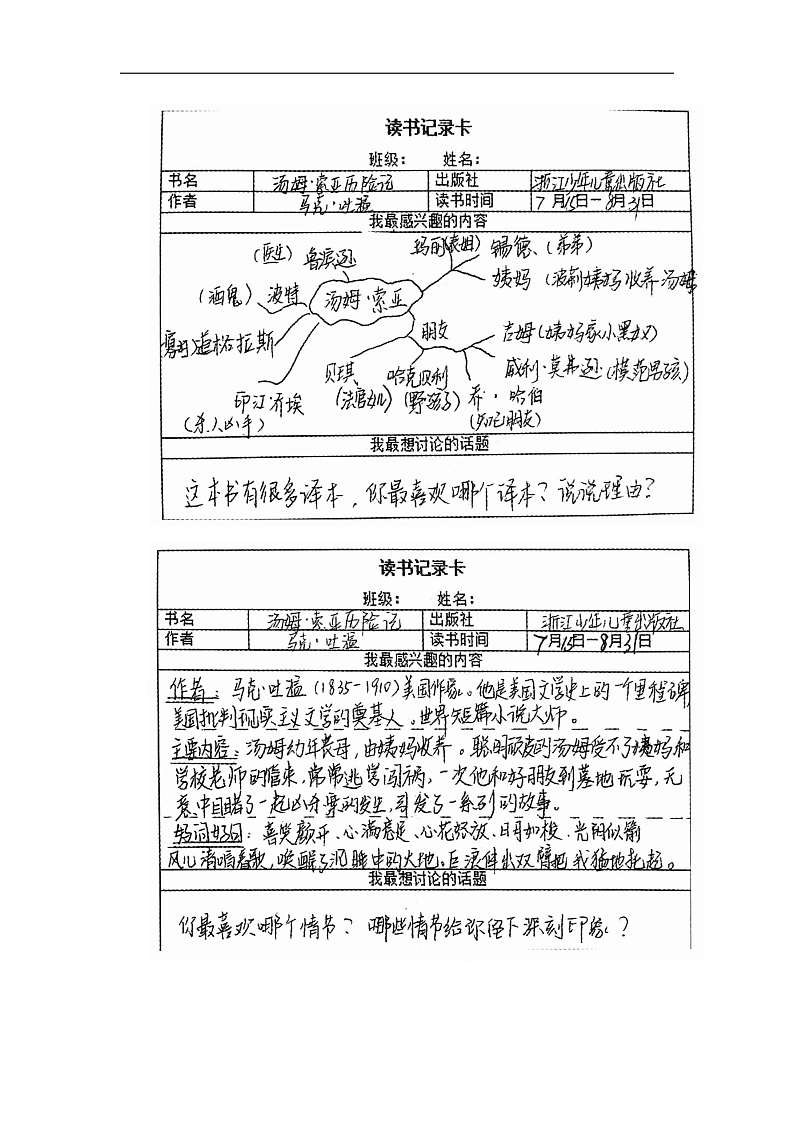 读书记录卡
班级： 姓名：
书名 汤姆·索亚历险记 出版社 浙江少年儿童出版社
作者 马克·吐温 读书时间 7月15日—8月31日
我最感兴趣的内容
（医生）鲁滨逊 玛丽（表姐） 锡德、（弟弟）
（酒鬼）波特 汤姆·索亚 姨妈（波莉姨妈收养汤姆
寡妇）道格拉斯 朋友 吉姆（姨妈家小黑奴）
贝琪 哈克贝利 威利·莫弗逊（模范男孩）
印江·乔埃 （法官女儿）（野孩子）乔·哈伯
（杀人凶手） （知己朋友）
我最想讨论的话题
这本书有很多译本，你最喜欢哪个译本？说说理由？
读书记录卡
班级： 姓名：
书名 汤姆·索亚历险记 出版社 浙江少年儿童出版社
作者 马克·吐温 读书时间 7月15日—8月31日
我最感兴趣的内容
作者：马克·吐温（1835-1910）美国作家。他是美国文学史上的一个里程碑，
美国批判现实主义文学的奠基人。世界短篇小说大师。
主要内容：汤姆幼年丧母，由姨妈收养。聪明顽皮的汤姆受不了姨妈和
学校老师的管束，常常逃学闯祸，一次他和好朋友到墓地玩耍，无
衷中目睹了一起凶杀案的发生，引发了一系列的故事。
好词好句：喜笑颜开、心满意足、心花怒放、日月如梭、光阴似箭
风儿清唱着歌，唤醒了沉睡中的大地。巨浪伸出双臂把我猛地托起。
我最想讨论的话题
你最喜欢哪个情节？哪些情节给你留下深刻印象？